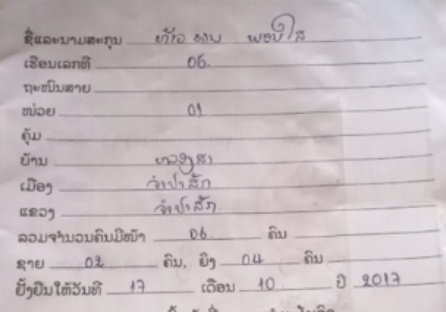 ຊື່ແລະນາມສະກຸນ ພອນໃສ
ເຮືອນເລກທີ 06.
ຖະໜົນສາຍ
ໜ່ວຍ 01
ຄຸ້ມ
ບ້ານ
ເມືອງ ຈຳປາສັກ
ແຂວງ ຈຳປາສັກ.
ລວມຈຳນວນຄົນມີໜ້າ 06 ຄົນ
ຊາຍ 02 ຄົນ, ຍິງ 04 ຄົນ
ຢັ້ງຢືນໃຫ້ວັນທີ 17 ເດືອນ 10 ປີ 2017